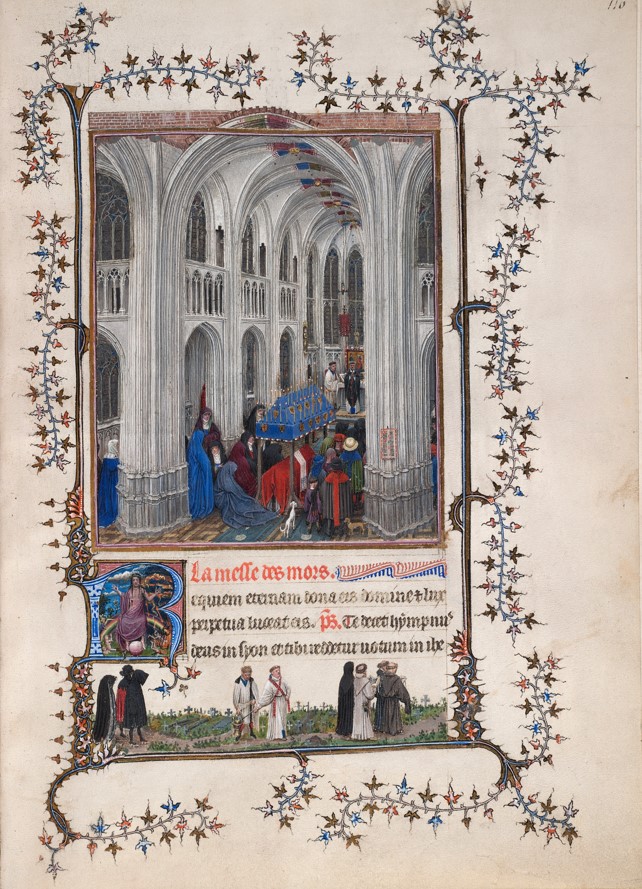 116
La messe des mors.
Requiem eternam dona eis domine ⁊ lux
perpetua luceat eis. ps. Te decet hympnu᷒
deus in syon et tibi reddetur uotum in ihe